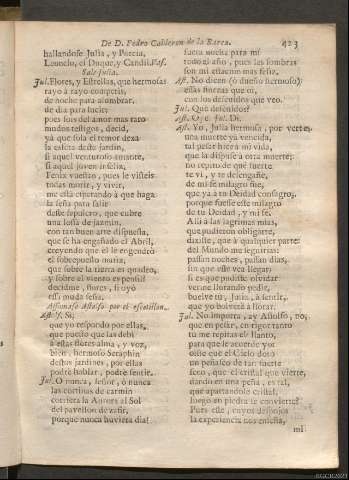 De D. Pedro Calderon de la Barca. 423
hallandose Julia, y Porcia,
Leonelo, el Duque, y Candil. Vas.
Sale Julia.
Jul. Flores, y Estrellas, que hermosas
rayo à rayo competis,
de noche para alumbrar,
de dia para lucir:
pues sois del amor mas raro
mudos testigos, decid,
ya que sola el temor dexa
la esfera deste jardin,
si aquel venturoso amante,
si aquel joven infeliz,
Fenix vuestro, pues le visteis
todas morir, y vivir,
me està esperando à que haga
la seña para salir
deste sepulcro, que cubre
una losa de jazmin,
con tan buen arte dispuesta,
que se ha engañado el Abril,
creyendo que èl le engendrò
el sobrepuesto matiz,
que sobre la tierra es quadro,
y sobre el viento es pensil?
decidme, flores, si oyò
essa muda seña.
Assomase Astolfo por el escotillon.
Ast. Si,
que yo respondo por ellas,
que puesto que las debì
à estas flores alma, y voz,
bien, hermoso Serafin
destos jardines, por ellas
podrè hablar, podrè sentir.
Jul. O nunca, señor, ò nunca
las cortinas de carmin
corriera la Aurora al Sol
del pavellon de zafir,
porque nunca huviera dia!
fuera noche para mi
todo el año, pues las sombras
son mi estacion mas feliz.
Ast. No dicen (ò dueño hermoso!)
ellas flores que oì,
con los defendidos que veo.
Jul. Què defendidos?
Ast. Oye. Jul. Di.
Ast. Yo, Julia hermosa, por verte,
una muerte ya vencida,
tal pesar hiera mi vida,
que la dispuse à otra muerte;
no repito de què suerte
te vi, y te desengañè,
de mi fee milagro fue,
que ya à tu Deidad consagro,
porque fuesse este milagro
de tu Deidad, y mi fe.
Alli à las lagrimas mias,
que pudieron obligarte,
dixiste, que à qualquier parte
del Mundo me seguirias:
passan noches, passan dias,
sin que esse vea llegar;
si es que pudiste olvidar
verme llorando pedir,
buelve tù, Julia, à sentir,
que yo bolverè à llorar.
Jul. No importa, ay Astolfo, no,
que en pesar, en rigor tanto
tu me repitas el llanto,
para que le acuerde yo:
oiste que el Cielo diò
un peñasco de tan fuerte
seco, que el cristal que vierte,
dando en una peña, es tal,
que apartandole cristal,
luego en piedra se convierte?
Pues este, cuyos despojos
la experiencia nos enseña,
mi